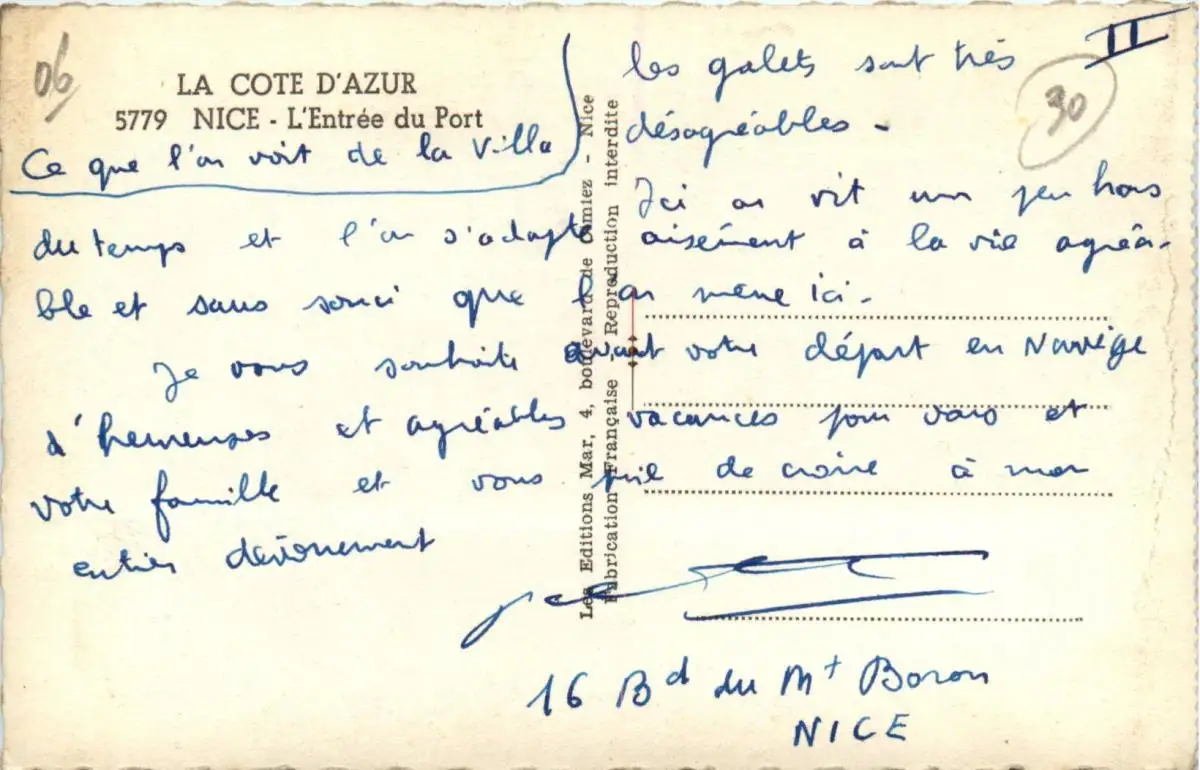 06
II
30
LA COTE D'AZUR
5779 NICE - L'Entrée du Port
Ce que l'on voit de la Villa
les galets sont très
désagréables -
Ici on vit un peu hors
du temps et l'on s'adapte aisément à la vie agréa-
ble et sans souci que l'on mène ici -
Je vous souhaite avant votre départ en Norvège
d'heureuses et agréables vacances pour vous et
votre famille et vous prie de croire à mon
entier dévouement
16 Bd du Mt Boron
NICE
Les Editions Mar, 4, boulevard de Cimiez - Nice
Fabrication Française - Reproduction interdite